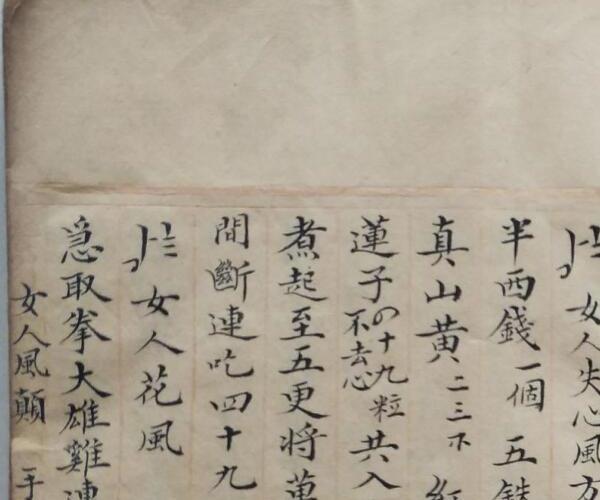 女人失心風方
半西錢一個 五銖
真山黄二三下 紅
蓮子四十九粒不去心共入
煮起至五更将萬
間斷連吃四十九
女人花風
急取拳大雄雞連
女人風顛 于